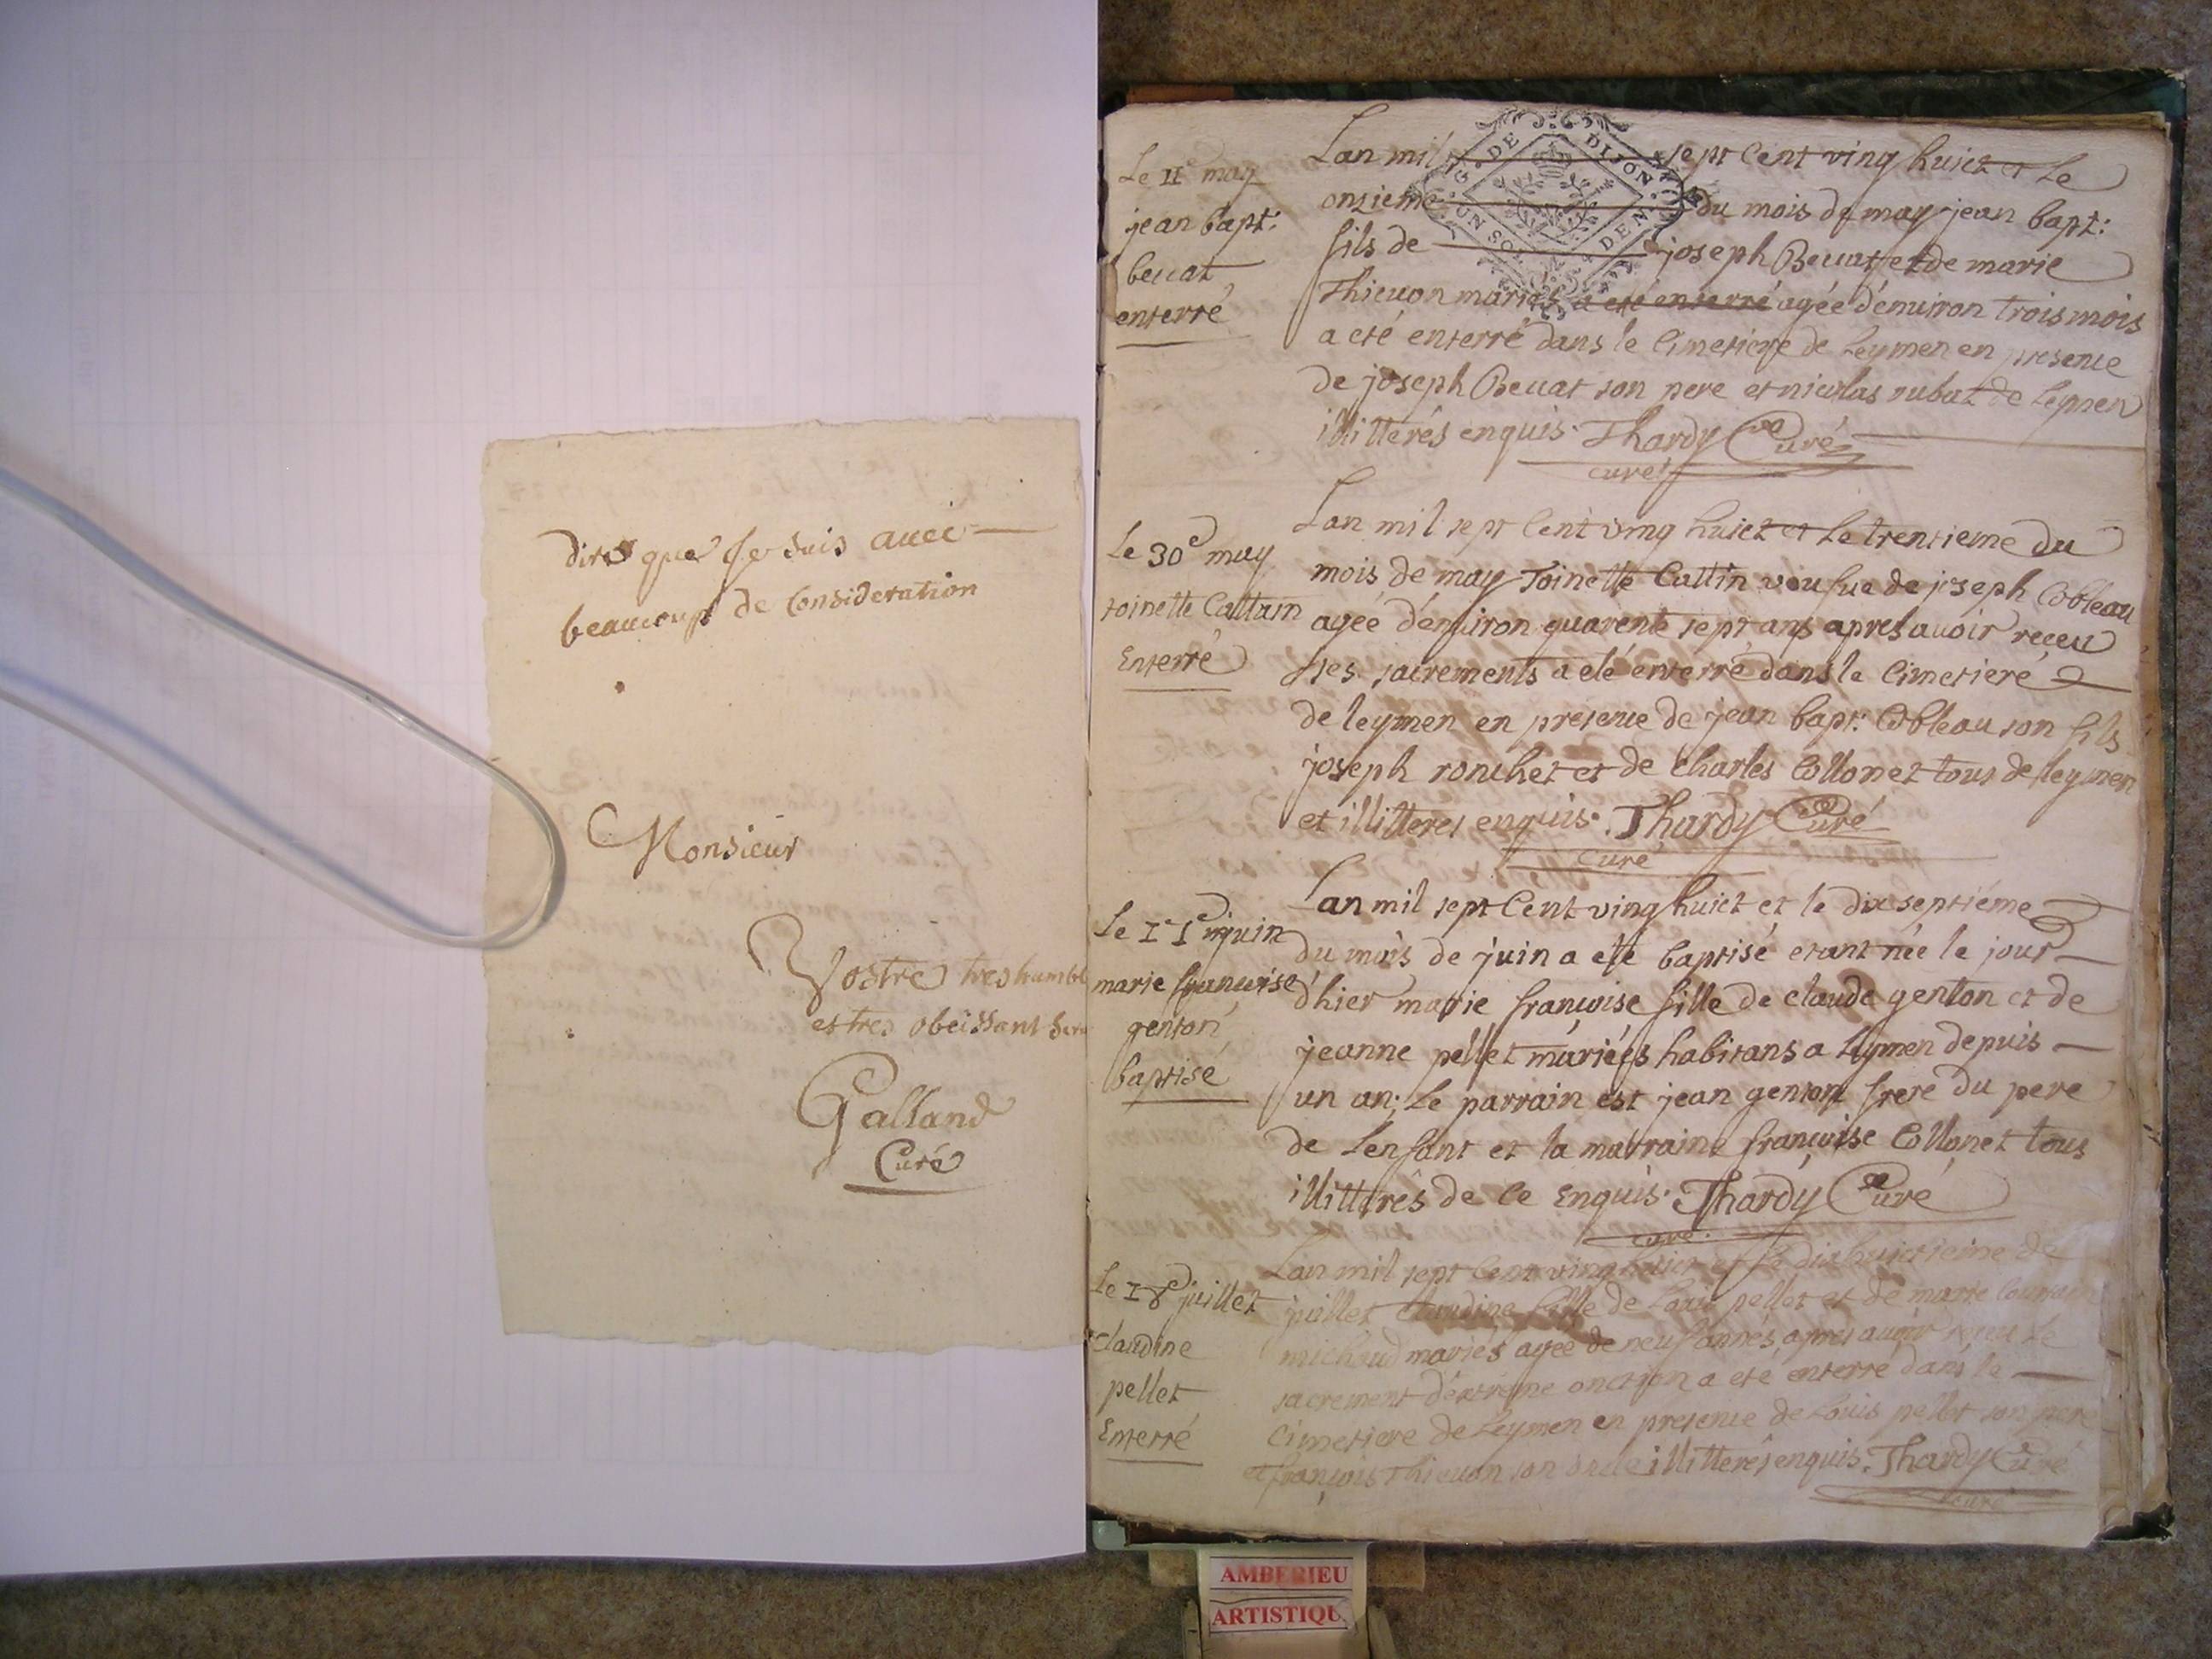 dire que Je suis avec
beaucoup de Consideration
Monsieur
Vostre tres humbl
et tres obeissant ser
Galland
Curé
Le 11e may
jean bapt:
beuat
enterré
Lan mil sept Cent ving huict et Le
onzieme du mois de may jean bapt:
fils de joseph Beuat et de marie
Thieuon mariés a eté enterré agée d'enuiron trois mois
a eté enterré dans le Cimetiere de Leymen en presence
de joseph Beuat son pere et nicolas rubat de Leymen
illitterés enquis. Thardy Curé
curé
G. DE DIJON
UN SOL DEN.
Le 30e may
toinette Cattin
Enterré
Lan mil sept Cent ving huict et Le trentieme du
mois de may Toinette Cattin veufue de joseph Cobleau
agée d'enuiron quarente sept ans apres auoir receu
ses sacrements a eté enterré dans le Cimetiere
de leymen en presence de jean bapt: Cobleau son fils
joseph ronchet et de charles Collonet tous de leymen
et illitteres enquis. Thardy Curé
curé
Le juin
marie françoise
genton
baptisé
Lan mil sept Cent ving huict et le dix septiéme
du mois de juin a eté baptisé etant née le jour
d'hier marie françoise fille de claude genton et de
jeanne pellet mariées habitans a leymen depuis
un an; Le parrain est jean genton frere du pere
de L'enfant et la marraine françoise Collonet tous
illitterés de Ce Enquis. Thardy Curé
curé
Le 18e juillet
Claudine
pellet
Enterré
Lan mil sept Cent ving huict et Le dix huictieme de
juillet claudine fille de Louis pellet et de marie
michaud mariés agée de neuf années, apres auoir receu Le
sacrement d'extreme onction a eté enterré dans le
Cimetiere de Leymen en presence de Louis pellet son pere
et françois Thieuon son oncle illitterés enquis. Thardy Curé
curé
AMBERIEU
ARTISTIQU